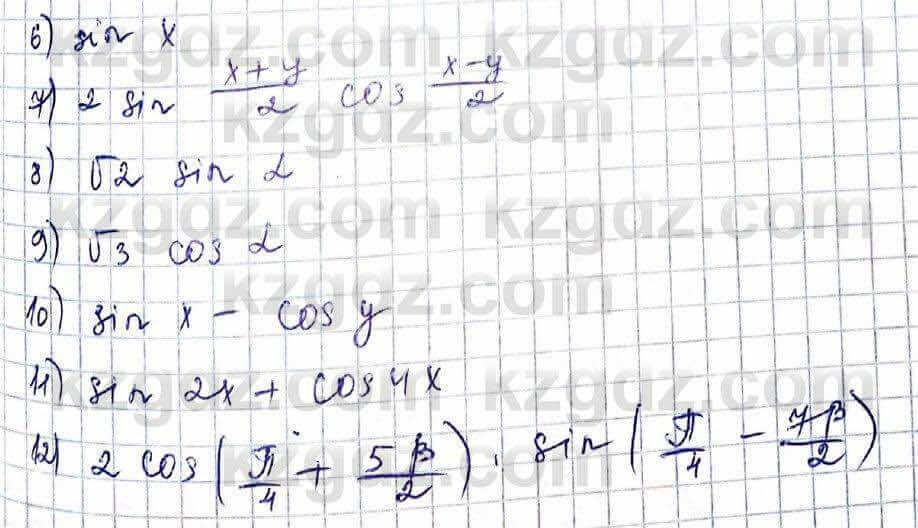 6) sin x
7) 2 sin (x+y)/2 cos (x-y)/2
8) √2 sin α
9) √3 cos α
10) sin x - cos y
11) sin 2x + cos 4x
12) 2 cos(π/4 + 5β/2) · sin(π/4 - 7β/2)
kzgdz.com kzgdz.com
kzgdz.com
kzgdz.com kzgdz.com
kzgdz.com
kzgdz.com kzgdz.com
kzgdz.com